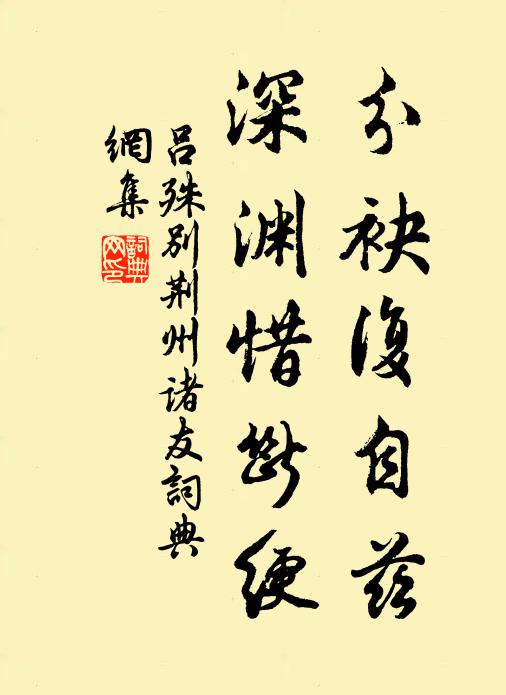 分袂復自茲
深渊惜斷綆
吕殊别荆州诸友詞典
網集
詞典网印